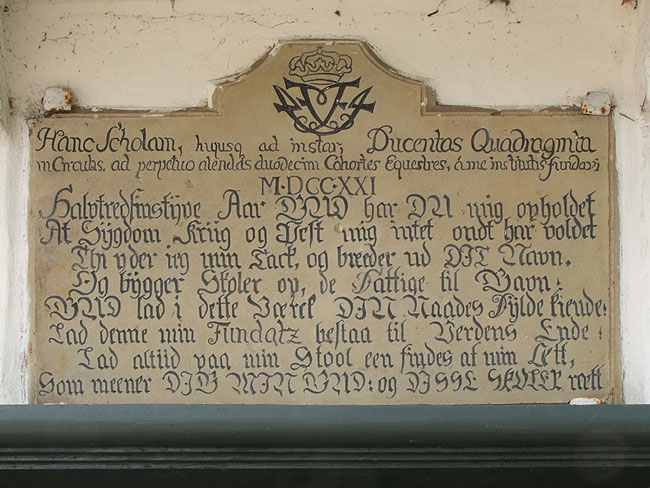 Hanc Scholam, hujusq ad instar, Ducentas Quadraginta
in Circulis, ad perpetuo alendas duodecim Cohortes Equestres, a me institutis fundavi;
M·DCC·XXI
Halvtredsinstÿve Aar GUD har DU mig opholdet
At Sÿgdom Kriig og Pest mig intet ondt har voldet
Thi yder ieg min Tack, og breeder ud DIT Navn.
Og bÿgger Skoler op, de Fattige til Gavn:
GUD lad i dette Værck DIN Naades Fÿlde kiende:
Lad denne min Fundatz bestaa til Verdens Ende:
Lad altiid paa min Stool een findes af min Ætt,
Som meener DIG MIN GUD: og DISSE SKOLER rætt